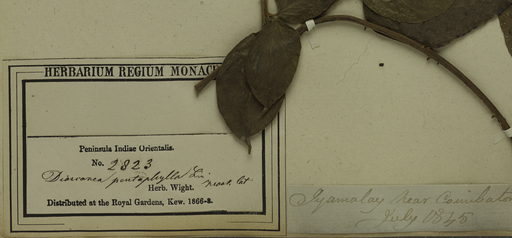 HERBARIUM REGIUM MONAC
Peninsula Indiae Orientalis.
No. 2823
Dioscorea pentaphylla Lin
Herb. Wight.
Distributed at the Royal Gardens, Kew. 1866-8.
Iyamalay near Coimbator
July 1845